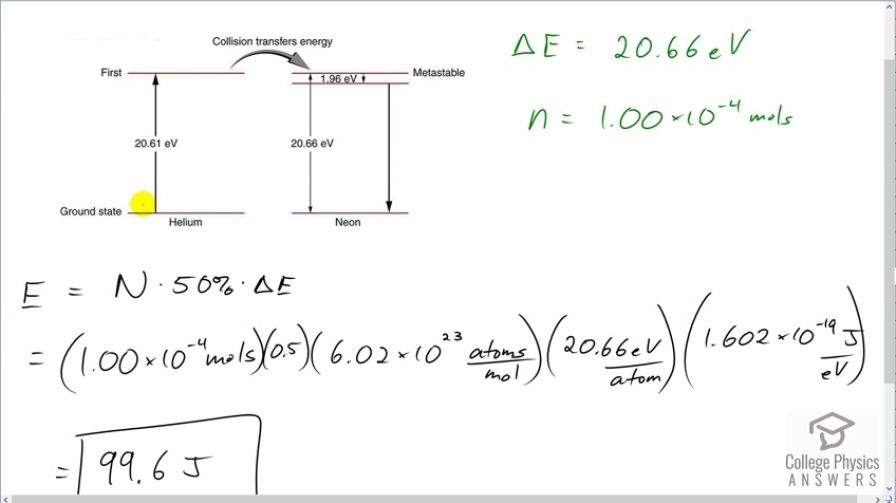 Collision transfers energy
First
1.96 eV
Metastable
20.61 eV
20.66 eV
Ground state
Helium
Neon
ΔE = 20.66 eV
n = 1.00×10⁻⁴ mols
E = N · 50% · ΔE
= (1.00×10⁻⁴ mols)(0.5)(6.02×10²³ atoms/mol)(20.66 eV/atom)(1.602×10⁻¹⁹ J/eV)
= 99.6 J
College Physics
ANSWERS